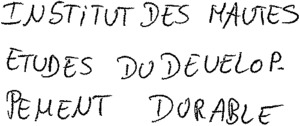 INSTITUT DES HAUTES
ETUDES DU DEVELOP-
PEMENT DURABLE